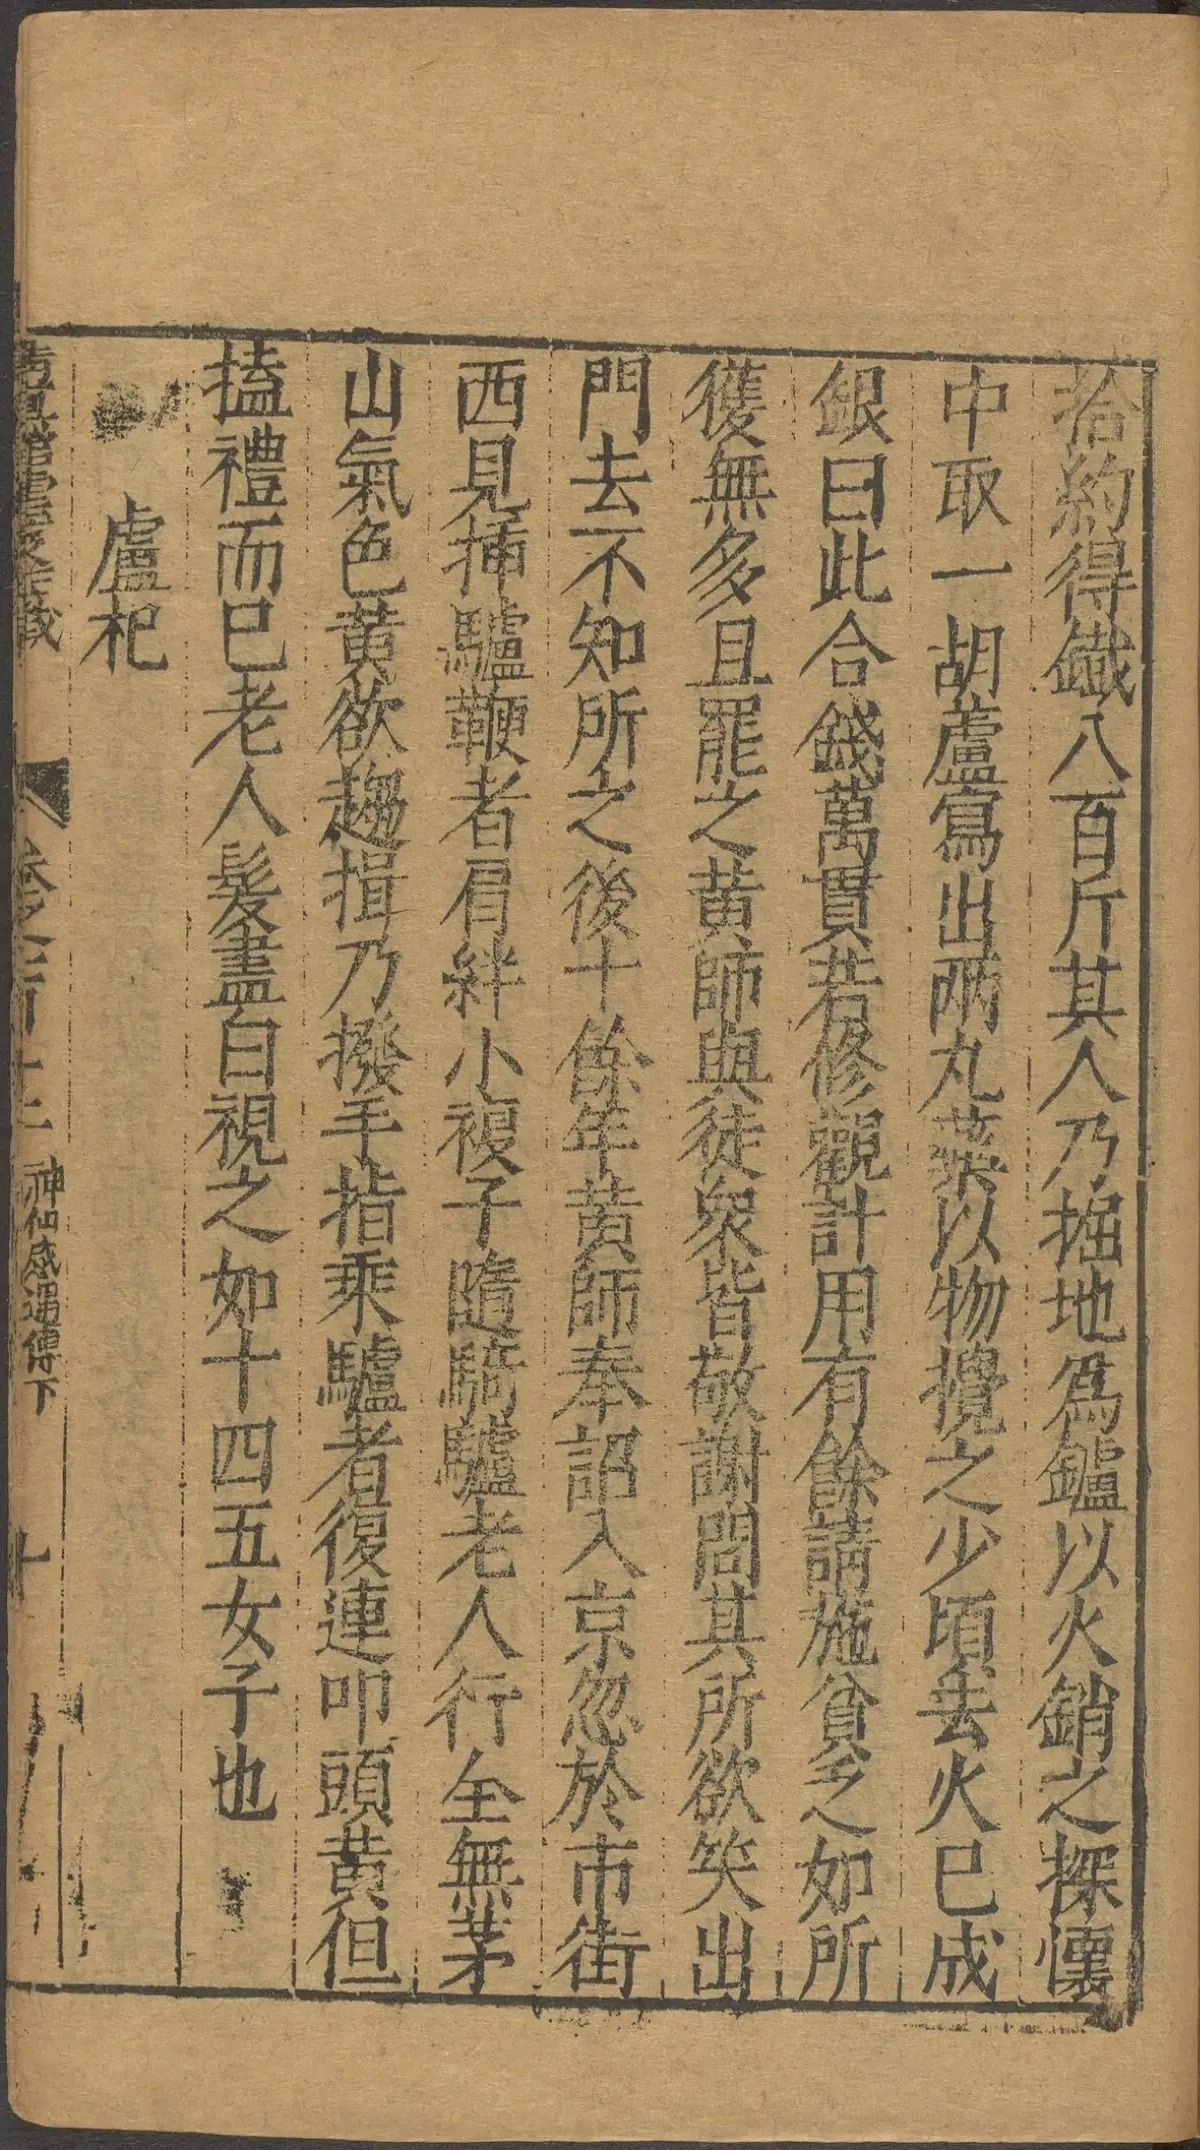 拾約得鐵八百斤其人乃掘地爲鑪以火銷之探懷
中取一胡蘆寫出兩丸藥以物攪之少頃去火已成
銀曰此合錢萬貫若修觀計用有餘請施貧乏如所
獲無多且罷之黃師與徒衆皆敬謝問其所欲笑出
門去不知所之後十餘年黃師奉詔入京忽於市街
西見插驢鞭者肩絆小複子隨騎驢老人行全無茅
山氣色黃欲趨揖乃撥手指乘驢者復連叩頭黃但
搕禮而已老人髮盡白視之如十四五女子也
盧杞
神仙感遇傳下 十